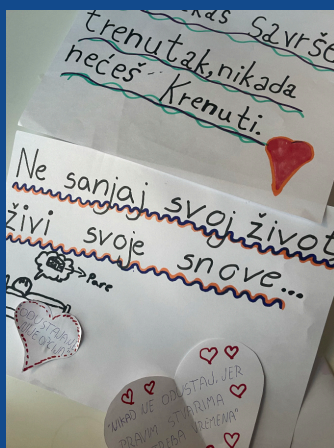 trenutak, nikada
nećeš Krenuti.
Ne sanjaj svoj život
živi svoje snove...
Pare
ODUSTAJANJE
"NIKAD NE ODUSTAJ, JER
PRAVIM STVARIMA
TREBA VREMENA"